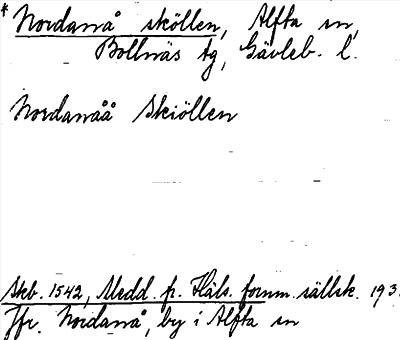 * Nordanå sköllen, Alfta sn,
Bollnäs tg, Gävleb. l.
Nordanåå Skiöllen
Skb. 1542, Medd. fr. Häls. fornm. sällsk. 193
Jfr. Nordanå, by i Alfta sn